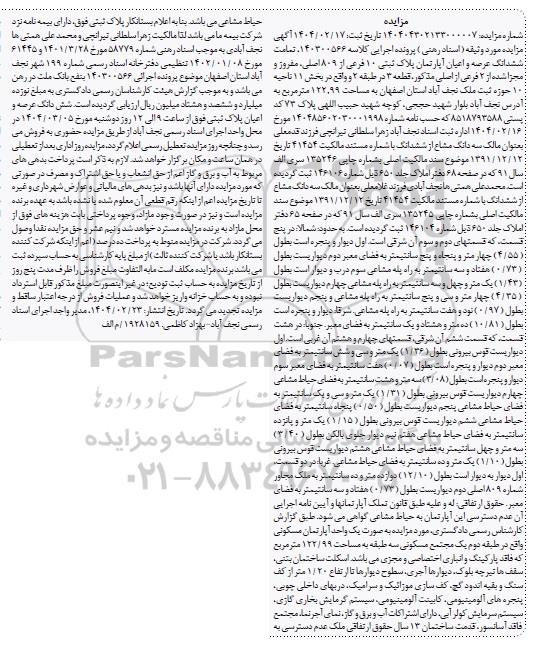 مزایده
شماره مزایده: ۱۴۰۴۰۴۳۰۲۱۳۳۰۰۰۰۰۷ تاریخ ثبت: ۱۴۰۴/۰۲/۱۷ آگهی
مزایده مورد وثیقه (اسناد رهنی) پرونده اجرایی کلاسه ۱۴۰۳۰۰۵۶۶، تمامت
ششدانگ عرصه و اعیان آپارتمان پلاک ثبتی ۱۰ فرعی از ۸۰۹ اصلی، مفروز و
مجزا شده از ۲ فرعی از اصلی مذکور، قطعه ۳ در طبقه ۲ و واقع در بخش ۱۱ ناحیه
۱۰ حوزه ثبت ملک نجف آباد استان اصفهان به مساحت ۱۲۲,۹۹ مترمربع به
آدرس نجف آباد بلوار شهید حججی، کوچه شهید حبیب اللهی پلاک ۷۳ کد
پستی ۸۵۱۸۷۹۳۵۸۸ که حسب نامه شماره ۱۴۰۴۸۵۶۰۲۰۳۰۰۰۱۹۹۸ مورخ
۱۴۰۴/۰۲/۱۶ اداره ثبت اسناد نجف آباد زهرا سلطانی تیرانچی فرزند قدمعلی
بعنوان مالک سه دانگ مشاع از ششدانگ با شماره مستند مالکیت ۴۱۴۵۴ تاریخ
۱۳۹۱/۱۲/۱۲ موضوع سند مالکیت اصلی بشماره چاپی ۱۳۵۲۴۶ سری الف
سال ۹۱ که در صفحه ۶۸ دفتر املاک جلد ۶۵۰ ذیل شماره ۱۴۶۱۰۶ ثبت گردیده
است. محمدعلی همتی ها نجف آبادی فرزند غلامعلی بعنوان مالک سه دانگ مشاع
از ششدانگ با شماره مستند مالکیت ۴۱۴۵۴ تاریخ ۱۳۹۱/۱۲/۱۲ موضوع سند
مالکیت اصلی بشماره چاپی ۱۳۵۲۴۵ سری الف سال ۹۱ که در صفحه ۶۵ دفتر
املاک جلد ۶۵۰ ذیل شماره ۱۴۶۱۰۴ ثبت گردیده است. به حدود: شمالا: در پنج
قسمت، که قسمتهای دوم و سوم آن شرقی است، اول دیوار و پنجره است بطول
(۴/۵۵) چهار متر و پنجاه و پنج سانتیمتر به فضای معبر دوم دیواریست بطول
(۰/۷۳) هفتاد و سه سانتیمتر به راه پله مشاعی سوم درب و دیوار است بطول
(۱/۴۳) یک متر و چهل و سه سانتیمتر به راه پله مشاعی چهارم دیواریست بطول
(۴/۳۵) چهار متر و سی و پنج سانتیمتر به راه پله مشاعی و پنجم دیواریست
بطول (۰/۹۷) نود و هفت سانتیمتر به راه پله مشاعی. شرقا: دیوار و پنجره است
بطول (۱۰/۸۱) ده متر و هشتاد و یک سانتیمتر به فضای معبر. جنوبا: در هشت
قسمت، که قسمت ششم آن شرقی، قسمتهای چهارم و هشتم آن غربی است. اول
دیواریست قوس بیرونی بطول (۱/۳۶) یک متر و سی و شش سانتیمتر به فضای
معبر دوم دیوار و پنجره است بطول (۰/۰۷) هفت سانتیمتر به فضای معبر سوم
دیوار و پنجره است بطول (۳/۰۸) سه متر و هشت سانتیمتر به فضای حیاط مشاعی
چهارم دیواریست قوس بیرونی بطول (۱/۳۱) یک متر و سی و یک سانتیمتر به
فضای حیاط مشاعی پنجم دیواریست بطول (۰/۵۰) پنجاه سانتیمتر به فضای
حیاط مشاعی ششم دیواریست قوس بیرونی بطول (۱/۱۵) یک متر و پانزده
سانتیمتر به فضای حیاط مشاعی هفتم نیم دیوار جلوی بالکن بطول (۳/۴۰)
سه متر و چهل سانتیمتر به فضای حیاط مشاعی هشتم دیواریست قوس بیرونی
بطول (۱/۱۰) یک متر و ده سانتیمتر به فضای حیاط مشاعی. غربا: در دو قسمت،
اول دیوار به دیوار است بطول (۱۲/۱۰) دوازده متر و ده سانتیمتر به ملک مجاور
شماره ۸۰۹ اصلی دوم دیواریست بطول (۰/۷۳) هفتاد و سه سانتیمتر به فضای
معبر. حقوق ارتفاقی: له و علیه طبق قانون تملک آپارتمانها و آیین نامه اجرایی
آن عدم دسترسی این آپارتمان به حیاط مشاعی گواهی می شود. طبق گزارش
کارشناس رسمی دادگستری، مورد مزایده به صورت یک واحد آپارتمان مسکونی
واقع در طبقه دوم یک مجتمع مسکونی سه طبقه به مساحت ۱۲۲/۹۹ متر مربع
که فاقد پارکینگ و انباری اختصاصی و مجزی می باشد. اسکلت ساختمان بتنی،
سقف ها تیرچه بلوک، دیوارها آجری، سطوح دیوارها تا ارتفاع ۱/۲۰ متر از کف
سنگ و بقیه اندود گچ، کف سازی موزائیک و سرامیک، دربهای داخلی چوبی،
پنجره های آلومینیومی، کابینت آلومینیومی، سیستم گرمایش بخاری گازی،
سیستم سرمایش کولر آبی، دارای اشتراکات آب و برق و گاز، نمای آجرنما، مجتمع
فاقد آسانسور، قدمت ساختمان ۱۳ سال حقوق ارتفاقی ملک عدم دسترسی به
حیاط مشاعی می باشد. بنا به اعلام بستانکار پلاک ثبتی فوق، دارای بیمه نامه نزد
شرکت بیمه ما می باشد لذا مالکیت زهرا سلطانی تیرانچی و محمدعلی همتی ها
نجف آبادی به موجب اسناد رهنی شماره ۵۸۷۷۹ مورخ ۱۴۰۱/۳/۲۸ و ۶۱۴۴۵
مورخ ۱۴۰۲/۰۱/۰۸ تنظیمی دفترخانه اسناد رسمی شماره ۱۹۹ شهر نجف
آباد استان اصفهان موضوع پرونده اجرائی ۱۴۰۳۰۰۵۶۶ بنفع بانک ملت در رهن
می باشد و به موجب گزارش هیئت کارشناسان رسمی دادگستری به مبلغ نوزده
میلیارد و ششصد و هشتاد میلیون ریال ارزیابی گردیده است. شش دانگ عرصه و
اعیان پلاک ثبتی فوق از ساعت ۹ الی ۱۲ روز دوشنبه مورخ ۱۴۰۴/۰۳/۰۵ در
محل واحد اجرای اسناد رسمی نجف آباد از طریق مزایده حضوری به فروش می
رسد و چنانچه روز مزایده تعطیل رسمی اعلام گردد، مزایده روز اداری بعد از تعطیلی
در همان ساعت و مکان برگزار خواهد شد. لازم به ذکر است پرداخت بدهی های
مربوط به آب و برق و گاز اعم از حق انشعاب و یا حق اشتراک و مصرف در صورتی
که مورد مزایده دارای آنها باشد و نیز بدهی های مالیاتی و عوارض شهرداری و غیره
تا تاریخ مزایده اعم از اینکه رقم قطعی آن معلوم شده یا نشده باشد به عهده برنده
مزایده است و نیز در صورت وجود مازاد، وجوه پرداختی بابت هزینه های فوق از
محل مازاد به برنده مزایده مسترد خواهد شد و نیم عشر و حق مزایده نقدا وصول
می گردد. شرکت در مزایده منوط به پرداخت ده درصد (اعم از اینکه شرکت کننده
بستانکار باشد یا شرکت کننده ثالث) از مبلغ پایه کارشناسی به حساب سپرده ثبت
می باشد. برنده مزایده مکلف است مابه التفاوت مبلغ فروش را ظرف مدت پنج روز
از تاریخ مزایده به حساب ثبت تودیع؛ در غیر اینصورت مبلغ مذکور قابل استرداد
نبوده و به حساب خزانه واریز خواهد شد و عملیات فروش از درجه اعتبار ساقط و
مزایده تجدید می گردد. تاریخ انتشار: ۱۴۰۴/۰۲/۲۳، مدیر واحد اجرای اسناد
رسمی نجف آباد - بهزاد کاظمی. ۱۹۲۸۱۵۹/م الف
ParsNamadData
پایگاه اطلاع رسانی مناقصه و مزایده